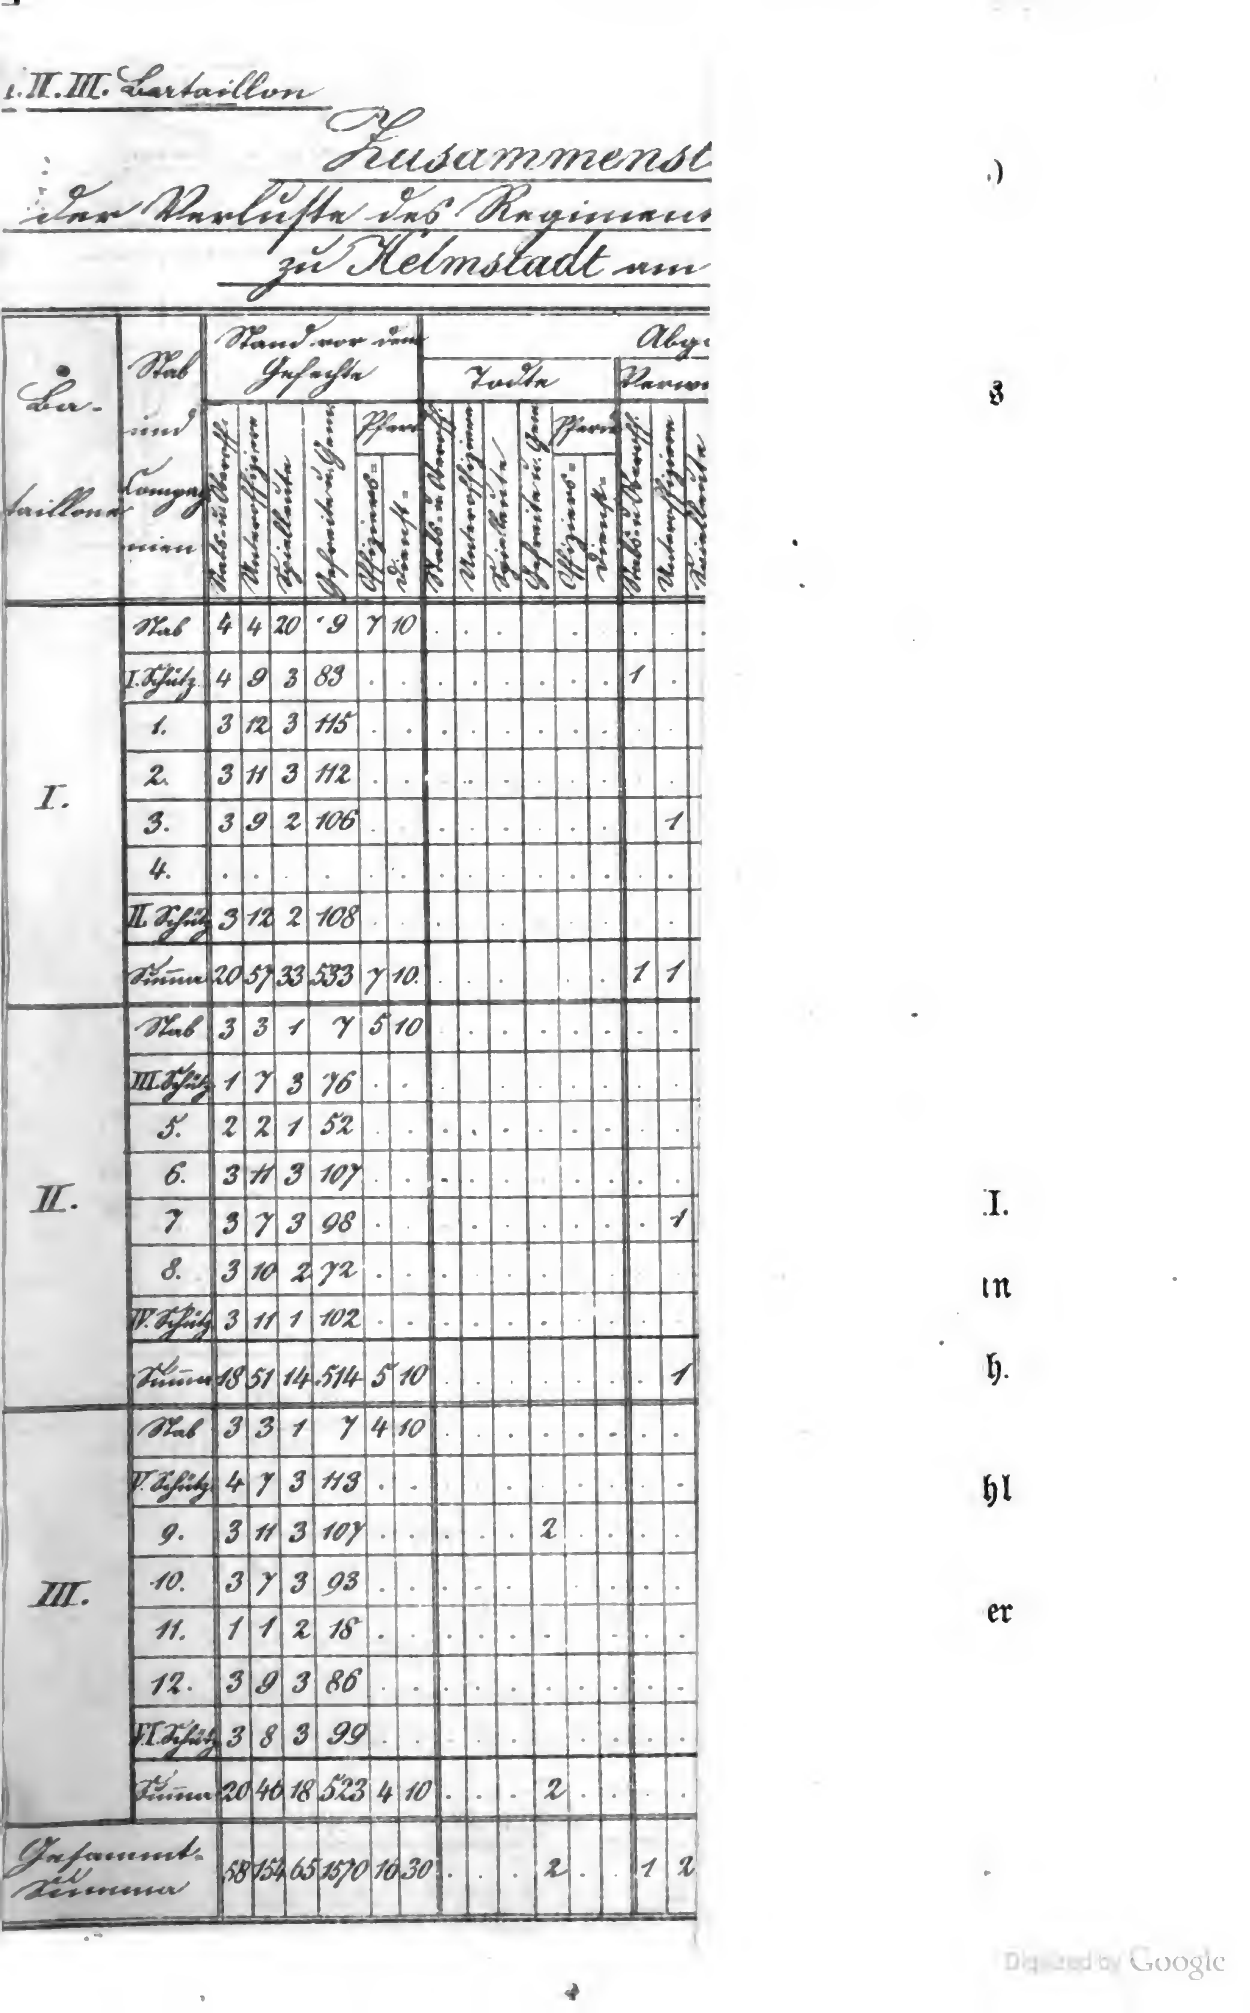 I. II. III. Bataillon
Zusammenst
der Verluste des Regimen
zu Helmstadt am
Ba-
taillone
Stab
und
Compag
nien
Stand vor dem
Gefechte
Abg
Todte
Verw
Stabs- u. Oberoff.
Unteroffiziere
Spielleute
Gefreite u. Gem.
Pferd
Offiziers-
Dienst-
Stabs- u. Oberoff.
Unteroffiziere
Spielleute
Gefreite u. Gem
Pferd
Offiziers-
Dienst-
Stabs- u. Oberoff.
Unteroffiziere
Spielleute
I.
Stab 4 4 20 9 7 10 . . . . . . .
I. Schütz. 4 9 3 83 . . . . . . . . 1 .
1. 3 12 3 115 . . . . . . . . . .
2. 3 11 3 112 . . . . . . . . . .
3. 3 9 2 106 . . . . . . . 1
4. . . . . . . . . . . . . . .
II. Schütz 3 12 2 108 . . . . . . . . . .
Summa 20 57 33 533 7 10. . . . . . . 1 1
II.
Stab 3 3 1 7 5 10 . . . . . . . .
III. Schütz 1 7 3 76 . . . . . . . . . .
5. 2 2 1 52 . . . . . . . . . .
6. 3 11 3 107 . . . . . . . . . .
7 3 7 3 98 . . . . . . . . . 1
8. 3 10 2 72 . . . . . . . . . .
IV. Schütz 3 11 1 102 . . . . . . . . . .
Summa 18 51 14 514 5 10 . . . . . . . 1
III.
Stab 3 3 1 7 4 10 . . . . . . . .
V. Schütz. 4 7 3 113 . . . . . . . . . .
9. 3 11 3 107 . . . . . 2 . . . .
10. 3 7 3 93 . . . . . . . . . .
11. 1 1 2 18 . . . . . . . . . .
12. 3 9 3 86 . . . . . . . . . .
VI. Schütz 3 8 3 99 . . . . . . . . . .
Summa 20 46 18 523 4 10 . . . 2 . . . .
Gesammt-
Summa
58 154 65 1570 16 30 . . . 2 . . 1 2
.)
s
I.
in
h.
hl
er
Digitized by Google